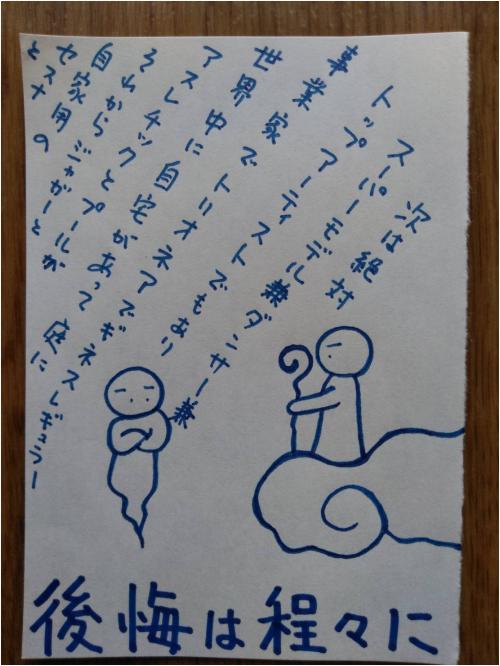 次は絶対
スーパーモデル兼ダンサー兼
トップアーティストでもあり
事業家でトリオネアでギネスレギュラー
世界中に自宅があって庭に
アスレチックとプールが
それから
自家用ジャガーと
セスナの
と
後悔は程々に